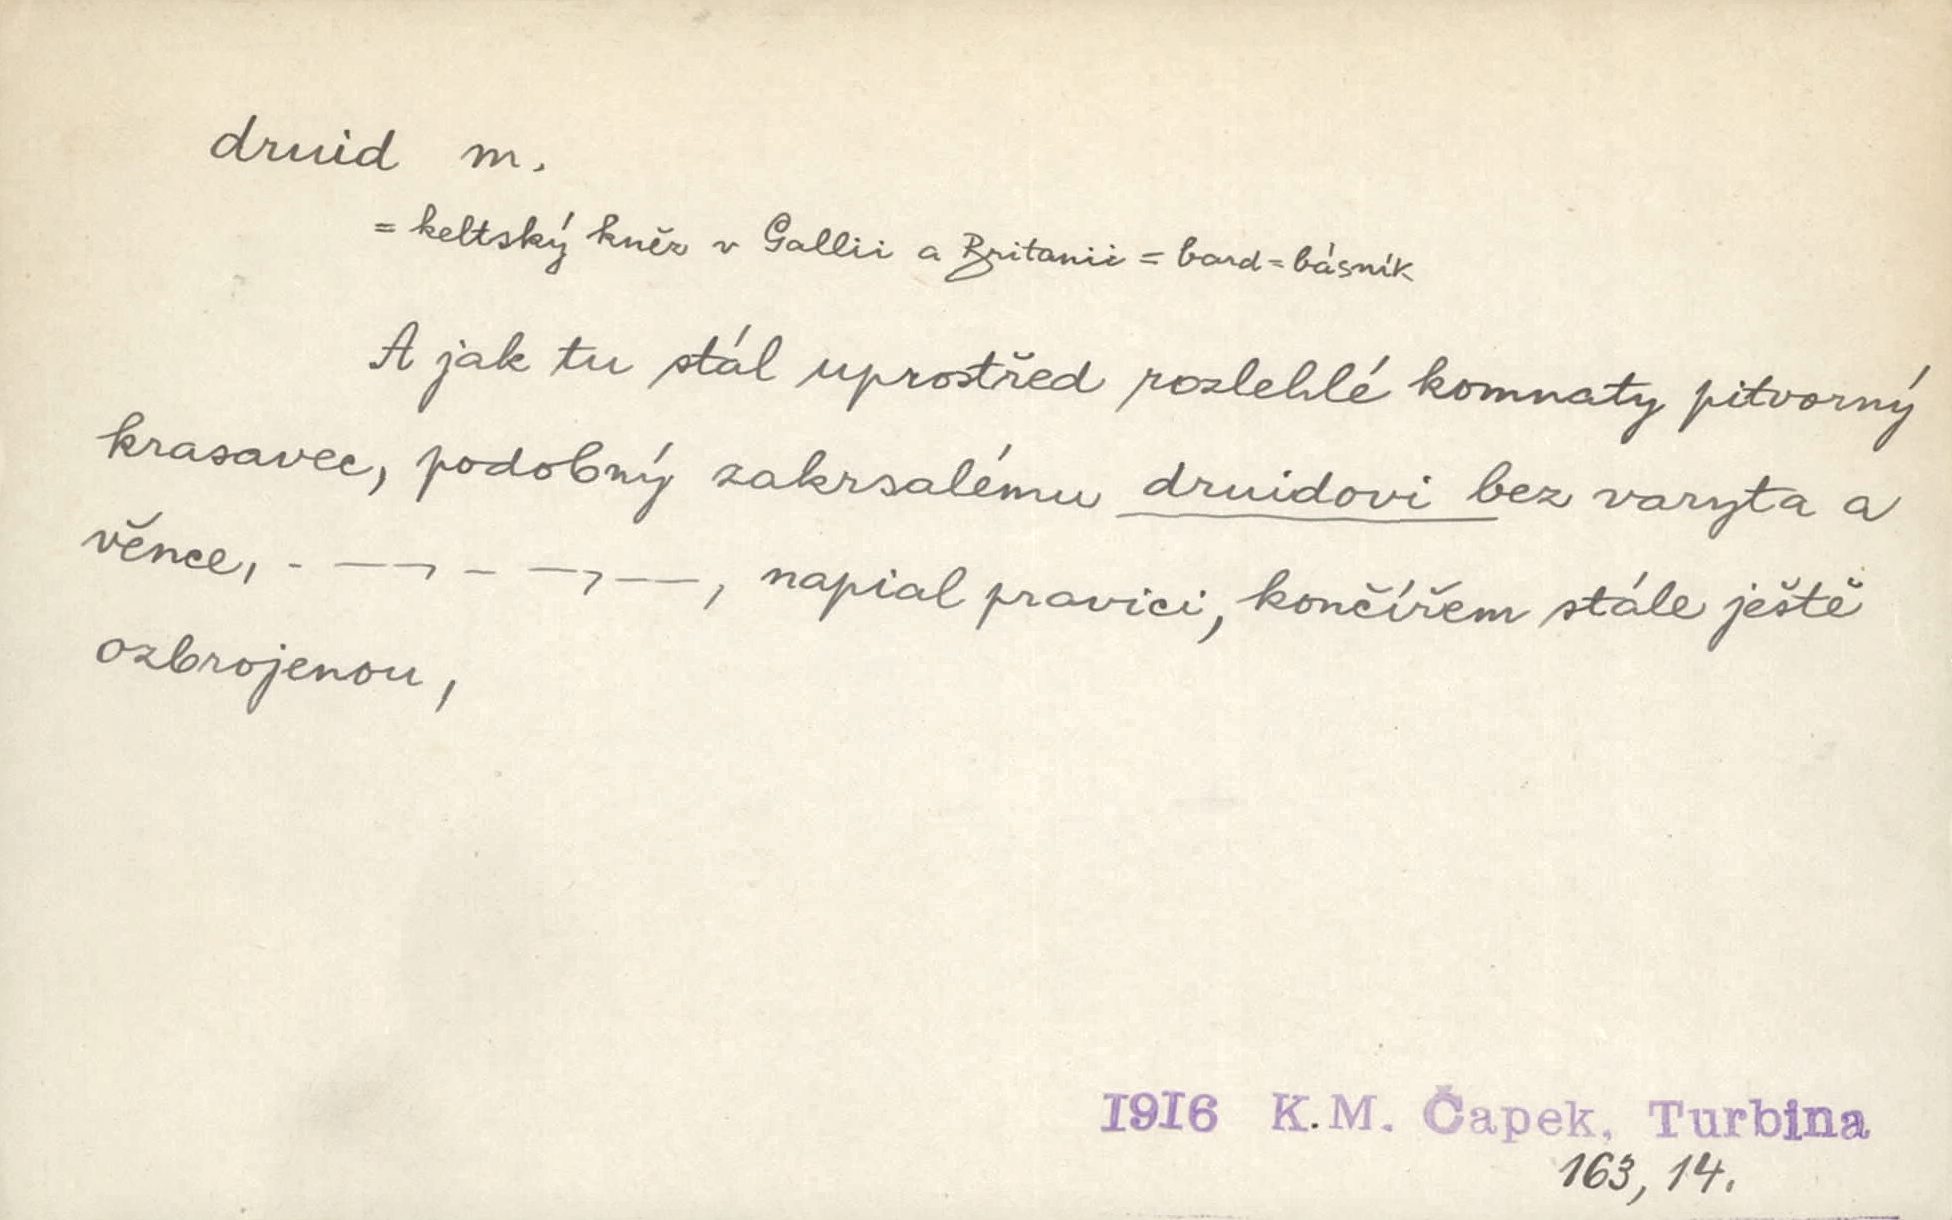 druid m.
= keltský kněz v Gallii a Britanii = bard = básník
A jak tu stál uprostřed rozlehlé komnaty pitvorný
krasavec, podobný zakrsalému druidovi bez varyta a
věnce, - —, - —, —, napial pravici, končířem stále ještě
ozbrojenou,
1916 K.M. Čapek, Turbina
163, 14.